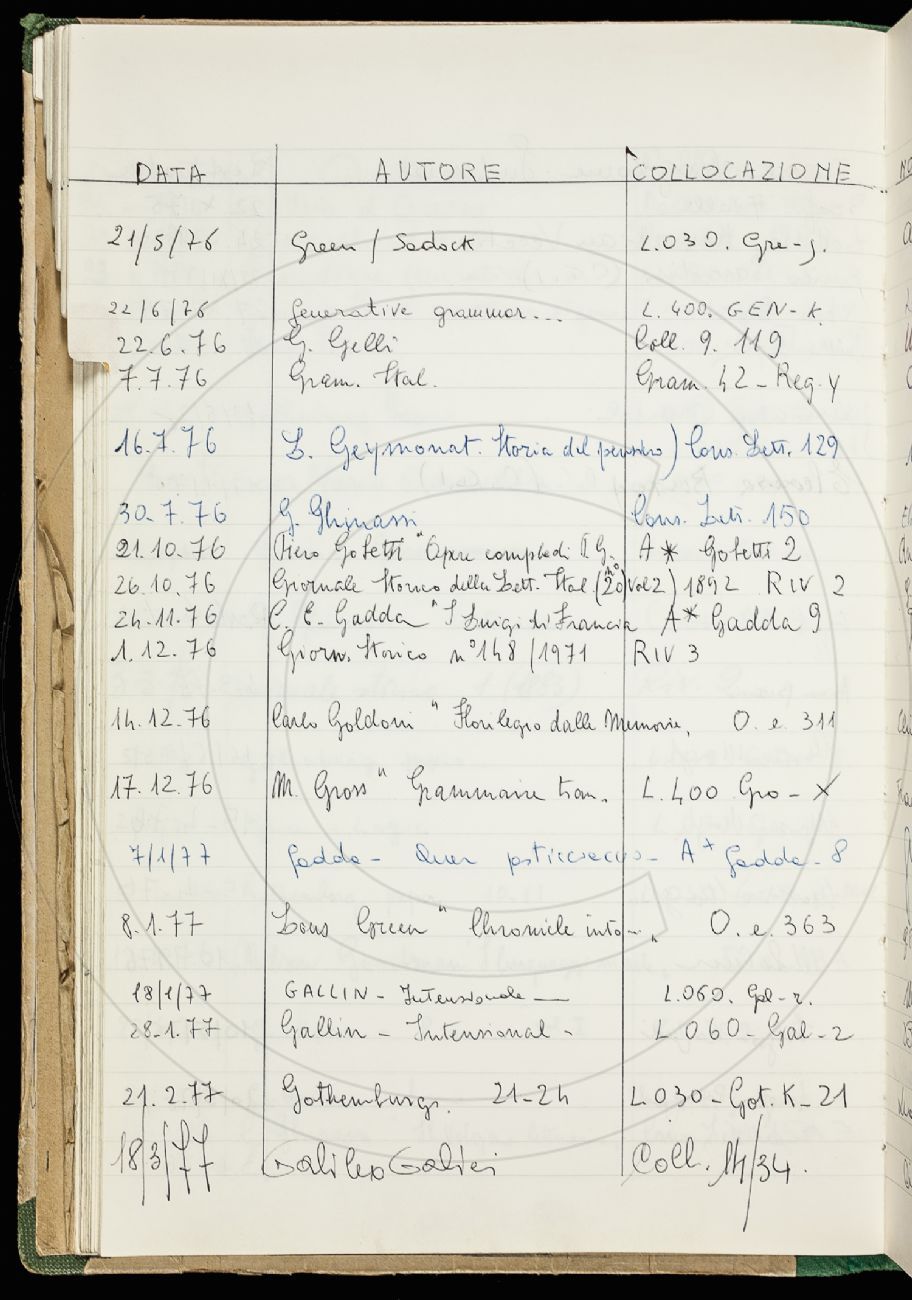 DATA AUTORE COLLOCAZIONE
21/5/76 Green / Sadock L.030. Gre-j.
22/6/76 generative grammar... L. 400. GEN-K.
22.6.76 G. Gelli Coll. 9. 119
7.7.76 Gram. Ital. Gram. 42 - Reg. y
16.7.76 L. Geymonat. Storia del pensiero) Cons. Lett. 129
30.7.76 G. Ghinassi Cons. Lett. 150
21.10.76 Piero Gobetti "Opere di P.G. A* Gobetti 2
26.10.76 Giornale Storico della Lett. Ital. (20 vol 2) 1892 RIV 2
24.11.76 C. E. Gadda "I Luigi di Francia A* Gadda 9
1.12.76 Giorn. Storico n° 148 / 1971 RIV 3
14.12.76 Carlo Goldoni " Florilegio dalle Memorie, O. e. 311
17.12.76 M. Gross " Grammaire tran. L.400 Gro - X
7/1/77 Gadda - Quer A+ Gadda - 8
8.1.77 Louis Green " Chronicle into - " O. e. 363
18/1/77 GALLIN - Intensionale — L.060. Gal - z.
28.1.77 Gallin - Intensional - L 060 - Gal - 2
21.2.77 Gothemburgs. 21-24 L030 - Got. K - 21
18/3/77 Galileo Galilei Coll. 14/34.